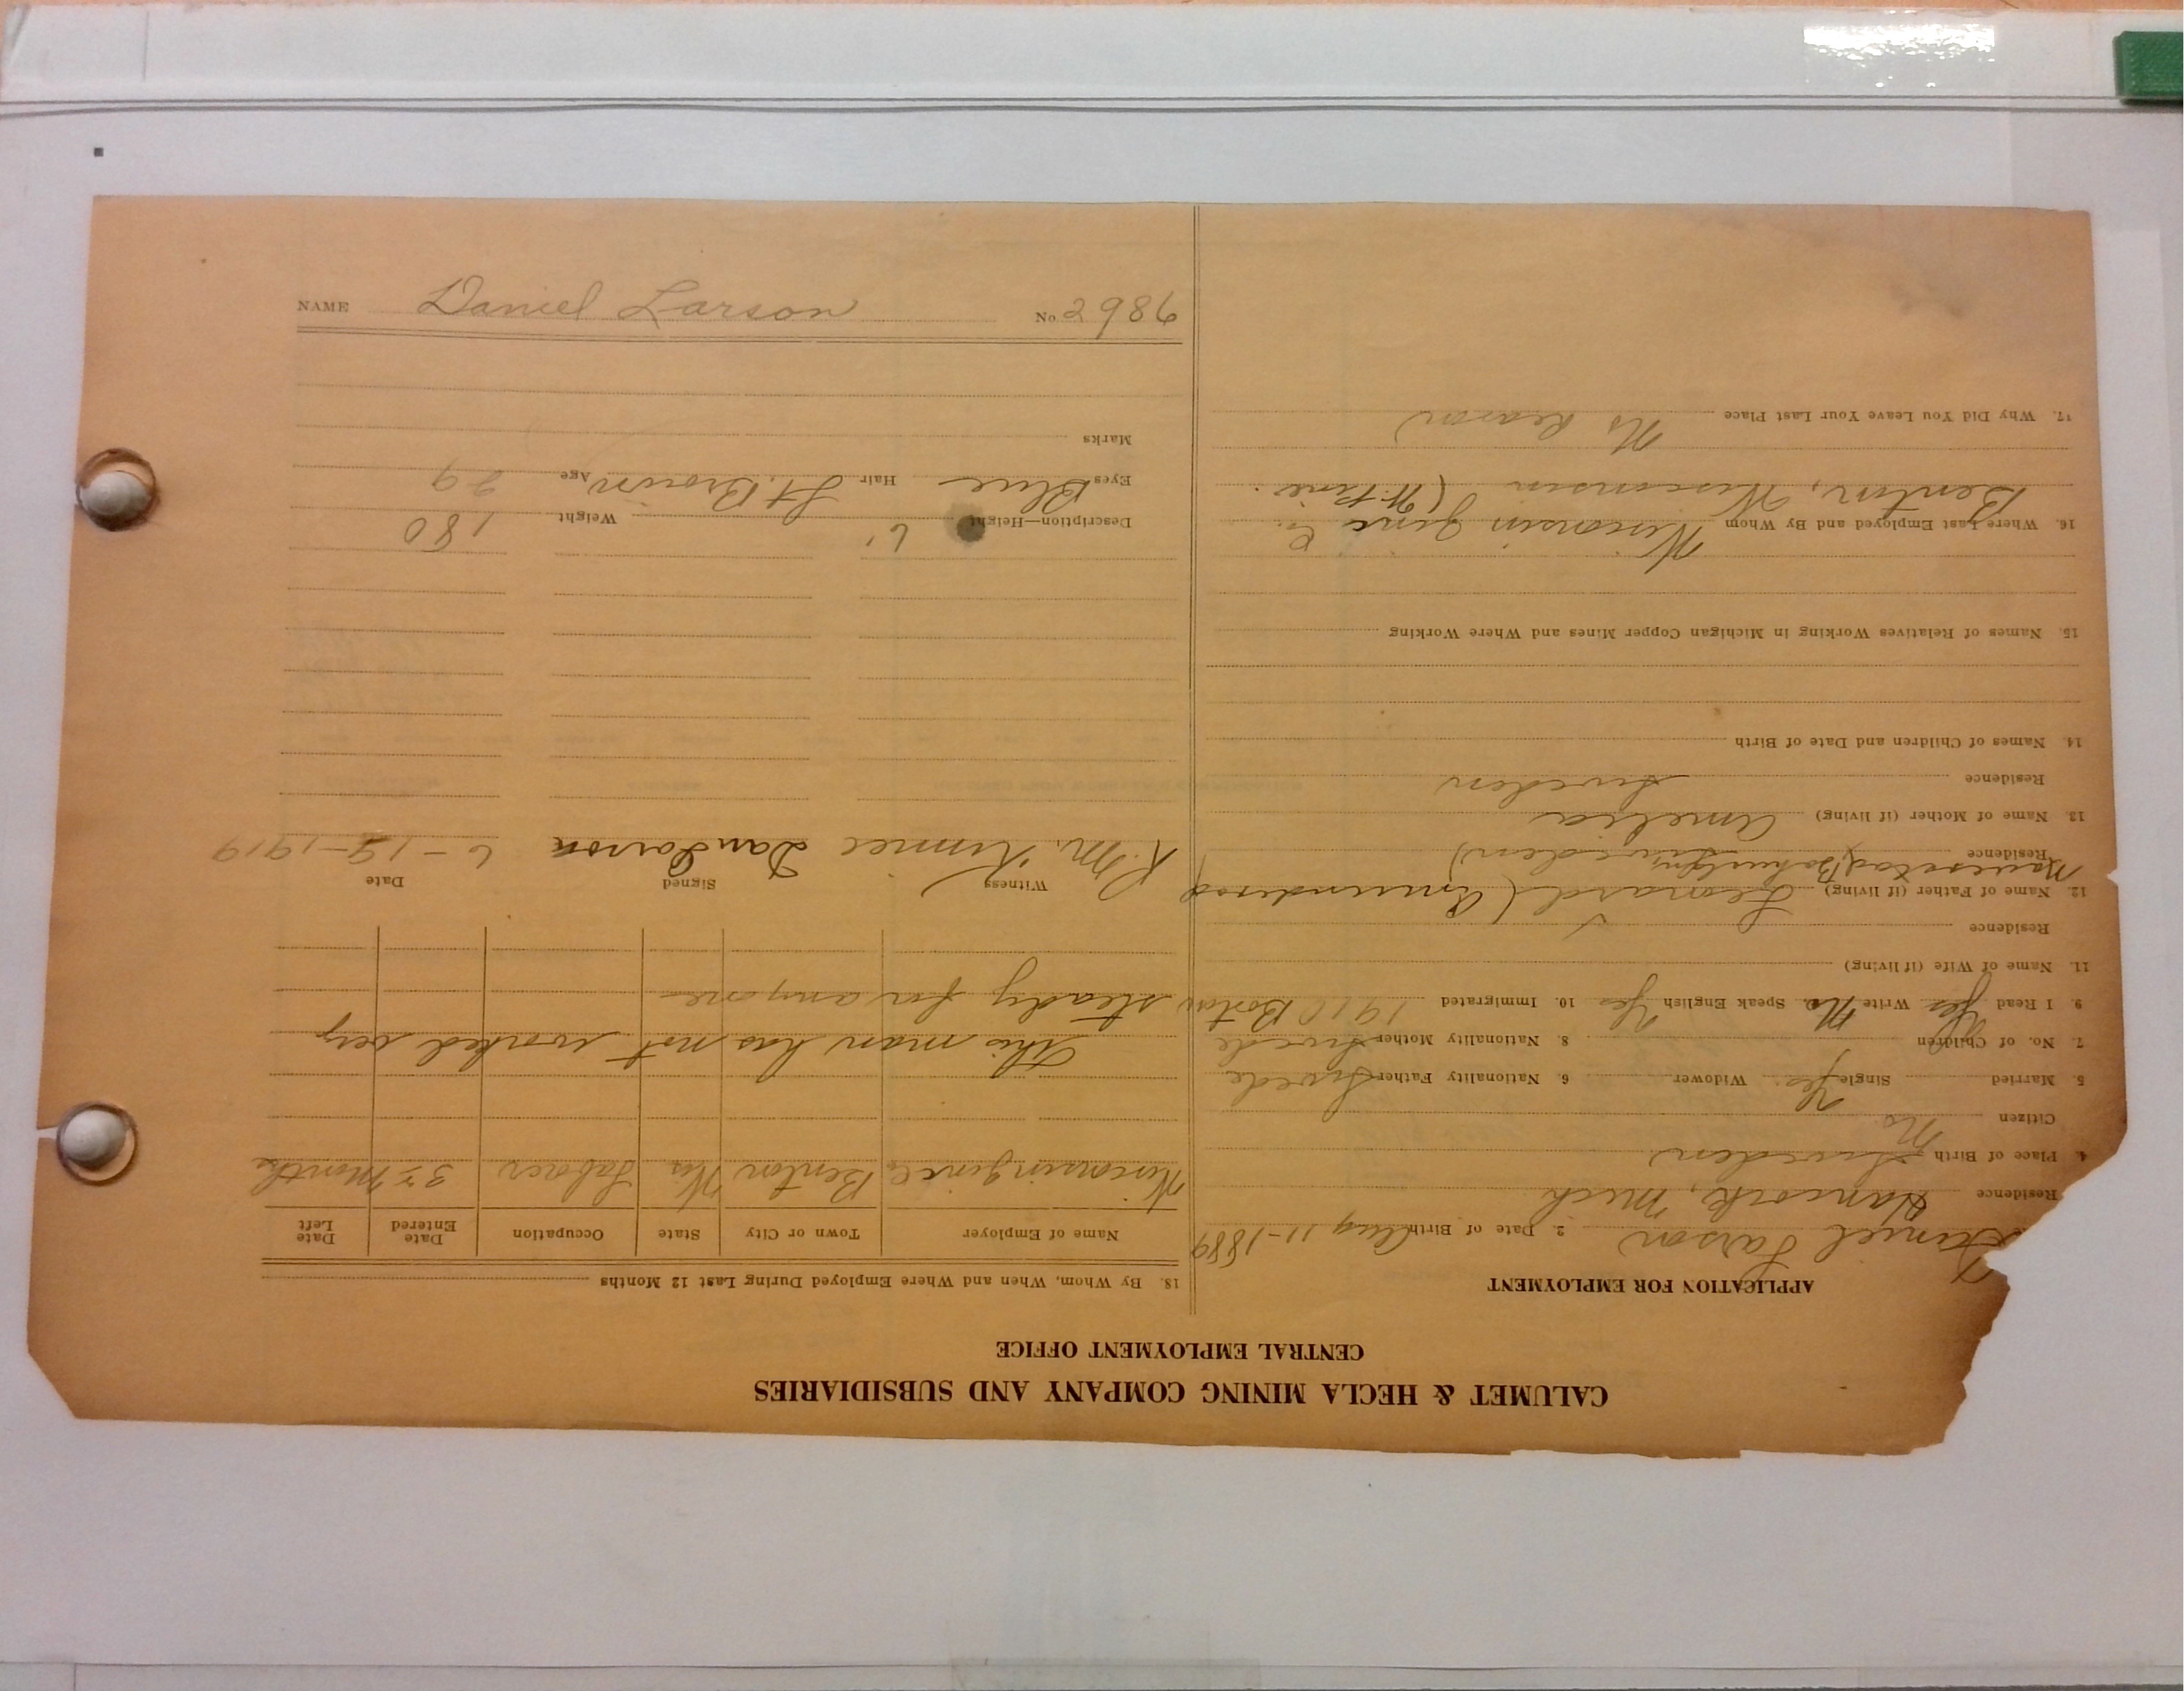 CALUMET & HECLA MINING COMPANY AND SUBSIDIARIES
CENTRAL EMPLOYMENT OFFICE
APPLICATION FOR EMPLOYMENT
Daniel Larson 2. Date of Birth Aug 11-1889
Residence Hancock, Mich
4. Place of Birth Sweden
Citizen No.
5. Married Single Yes. Widower 6. Nationality Father Swede
7. No. of Children 8. Nationality Mother Swede
9. I Read Yes Write No. Speak English Yes 10. Immigrated 1910 Boston
11. Name of Wife (if living)
Residence
12. Name of Father (if living) Leonard (Amunderod
Residence Sweden)
13. Name of Mother (if living) Amelia
Residence Sweden
14. Names of Children and Date of Birth
15. Names of Relatives Working in Michigan Copper Mines and Where Working
16. Where Last Employed and By Whom Wisconsin Zinc Co.
Benton, Wisconsin
17. Why Did You Leave Your Last Place No Reason
18. By Whom, When and Where Employed During Last 12 Months
Name of Employer Town or City State Occupation Date Entered Date Left
Wisconsin Zinc Co Benton Wis Laborer 3 Months
This man has not worked very
steady for anyone
Witness Signed Date
R. M. Kinnie Dan Larson 6-19-1919
Description—Height 6' Weight 180
Eyes Blue Hair Lt. Brown Age 29
Marks
NAME Daniel Larson No. 2986